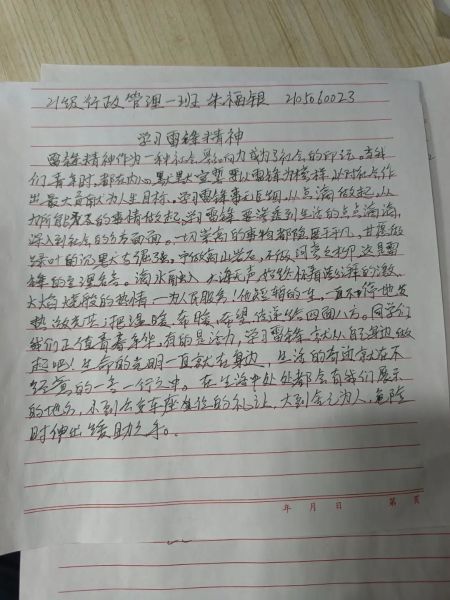 21级行政管理一班 朱福银 2105060023
学习雷锋精神
雷锋精神作为一种社会 影响力成为了社会的印记。当我
们青年时,都在内心默默大写要以雷锋为榜样,以对社会作
出最大贡献为人生目标,学习雷锋事无巨细,从点滴做起,从
力所能及的事情做起,学习雷锋要深透到生活的点点滴滴,
深入到社会的方方面面。一切崇高的事物都隐居于平凡,甘愿做
绿叶的沉默大方倔强。宁做高山岩石,不做河旁之柳 这是雷
锋的至理名言。滴水融入 大海无声的
太阳 的热情 一为人民服务!他短暂的一生,一直不停地发
热 散光芒;把温暖、希 、希望传递给四面八方。同学们
我们正值青春年华,有的是活力,学习雷锋就从自身边做
起吧!生命的光明一直就在身边,生活的奇迹就在不
经意的一言一行之中。在生活中处处都会有我们展示
的地方,小到公交车座座位的礼让,大到舍己为人,危险
时伸出援助之手。
年 月 日 第 页